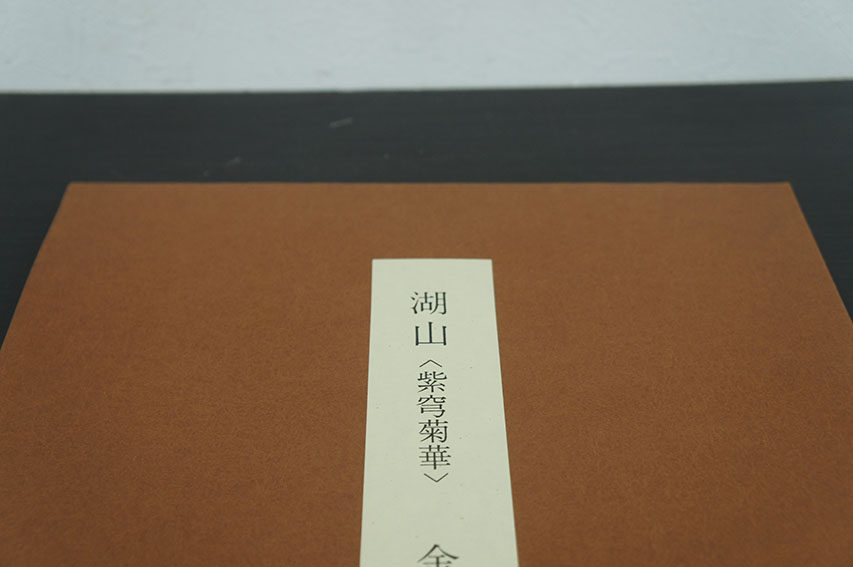 湖山〈紫穹菊華〉